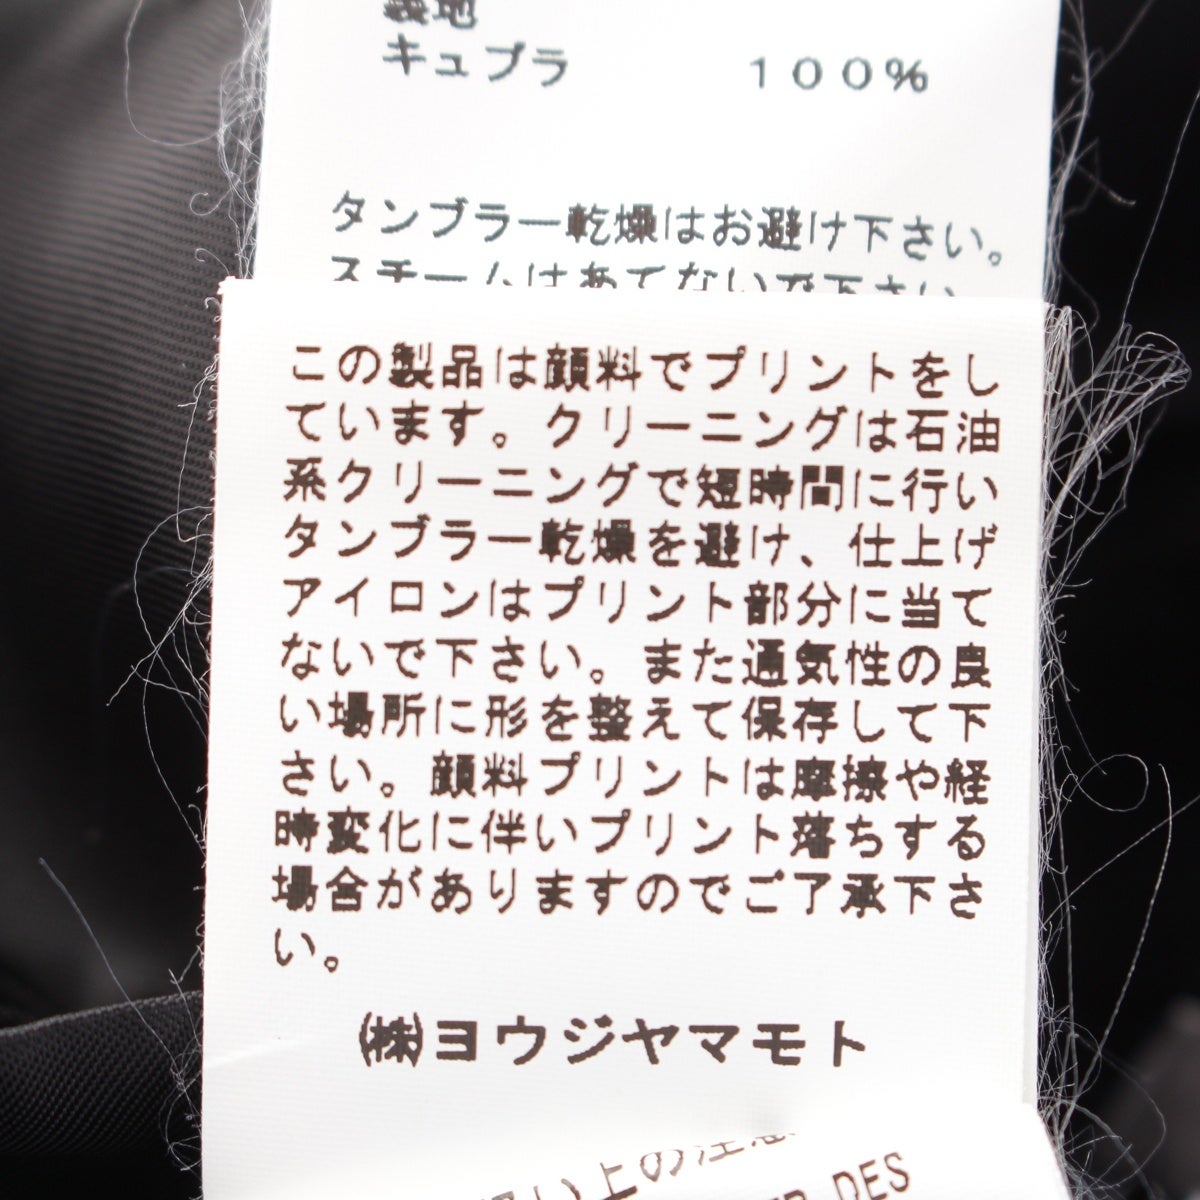 裏地
キュプラ 100%
タンブラー乾燥はお避け下さい。
スチームはあてないで下さい
この製品は顔料でプリントをし
ています。クリーニングは石油
系クリーニングで短時間に行い
タンブラー乾燥を避け、仕上げ
アイロンはプリント部分に当て
ないで下さい。また通気性の良
い場所に形を整えて保存して下
さい。顔料プリントは摩擦や経
時変化に伴いプリント落ちする
場合がありますのでご了承下さ
い。
㈱ヨウジヤマモト
い上の注意
DES